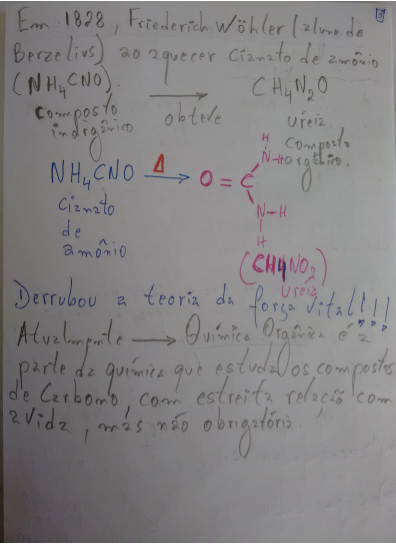 Em 1828, Friederich Wöhler (aluno de
Berzelius) ao aquecer Cianato de amônio
(NH4CNO). → CH4N2O
composto inorgânico obteve ureia composto orgânico.
NH4CNO Δ→ O=C
N-H
H
N-H
H
Cianato
de
amônio
(CH4NO2)
ureia
Derrubou a teoria da força vital!!!
Atualmente → Química Orgânica é a
parte da química que estuda os compostos
de Carbono com estreita relação com
a vida, más não obrigatória.